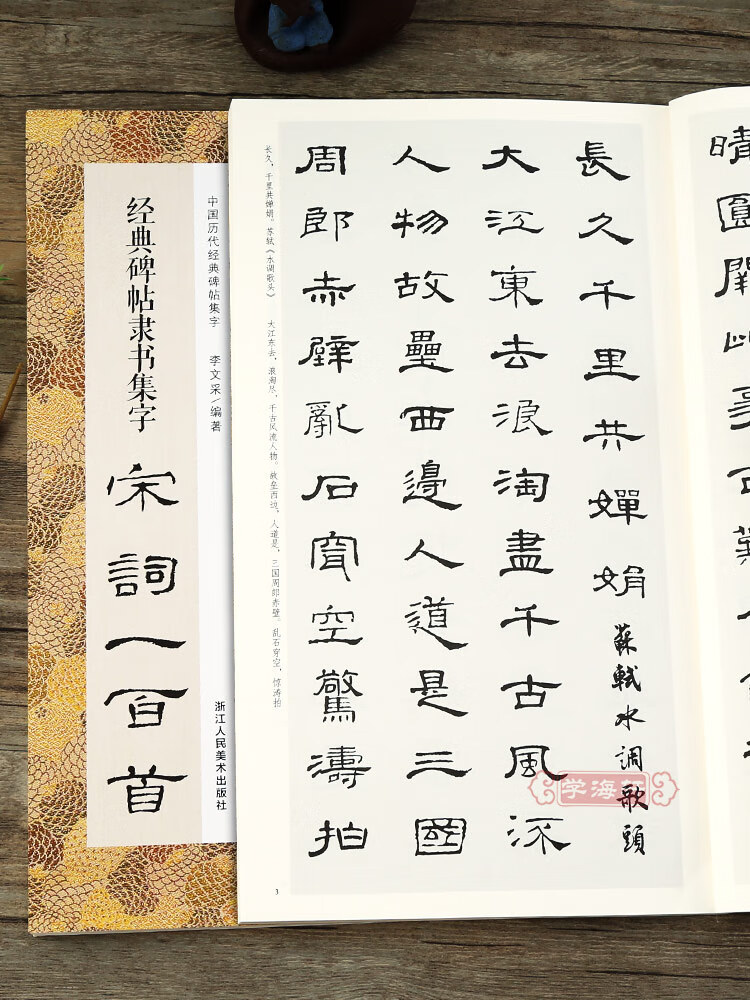 经典碑帖隶书集字
宋词一百首
中国历代经典碑帖集字 李文采/编著
浙江人民美术出版社
晴圓闕此事古難
長久千里共嬋娟
蘇軾水調歌頭
大江東去浪淘盡千古風流
人物故壘西邊人道是三國
周郎赤壁亂石穿空驚濤拍
长久，千里共婵娟。苏轼《水调歌头》 大江东去，浪淘尽，千古风流人物。故垒西边，人道是，三国周郎赤壁。乱石穿空，惊涛拍
3
学海轩